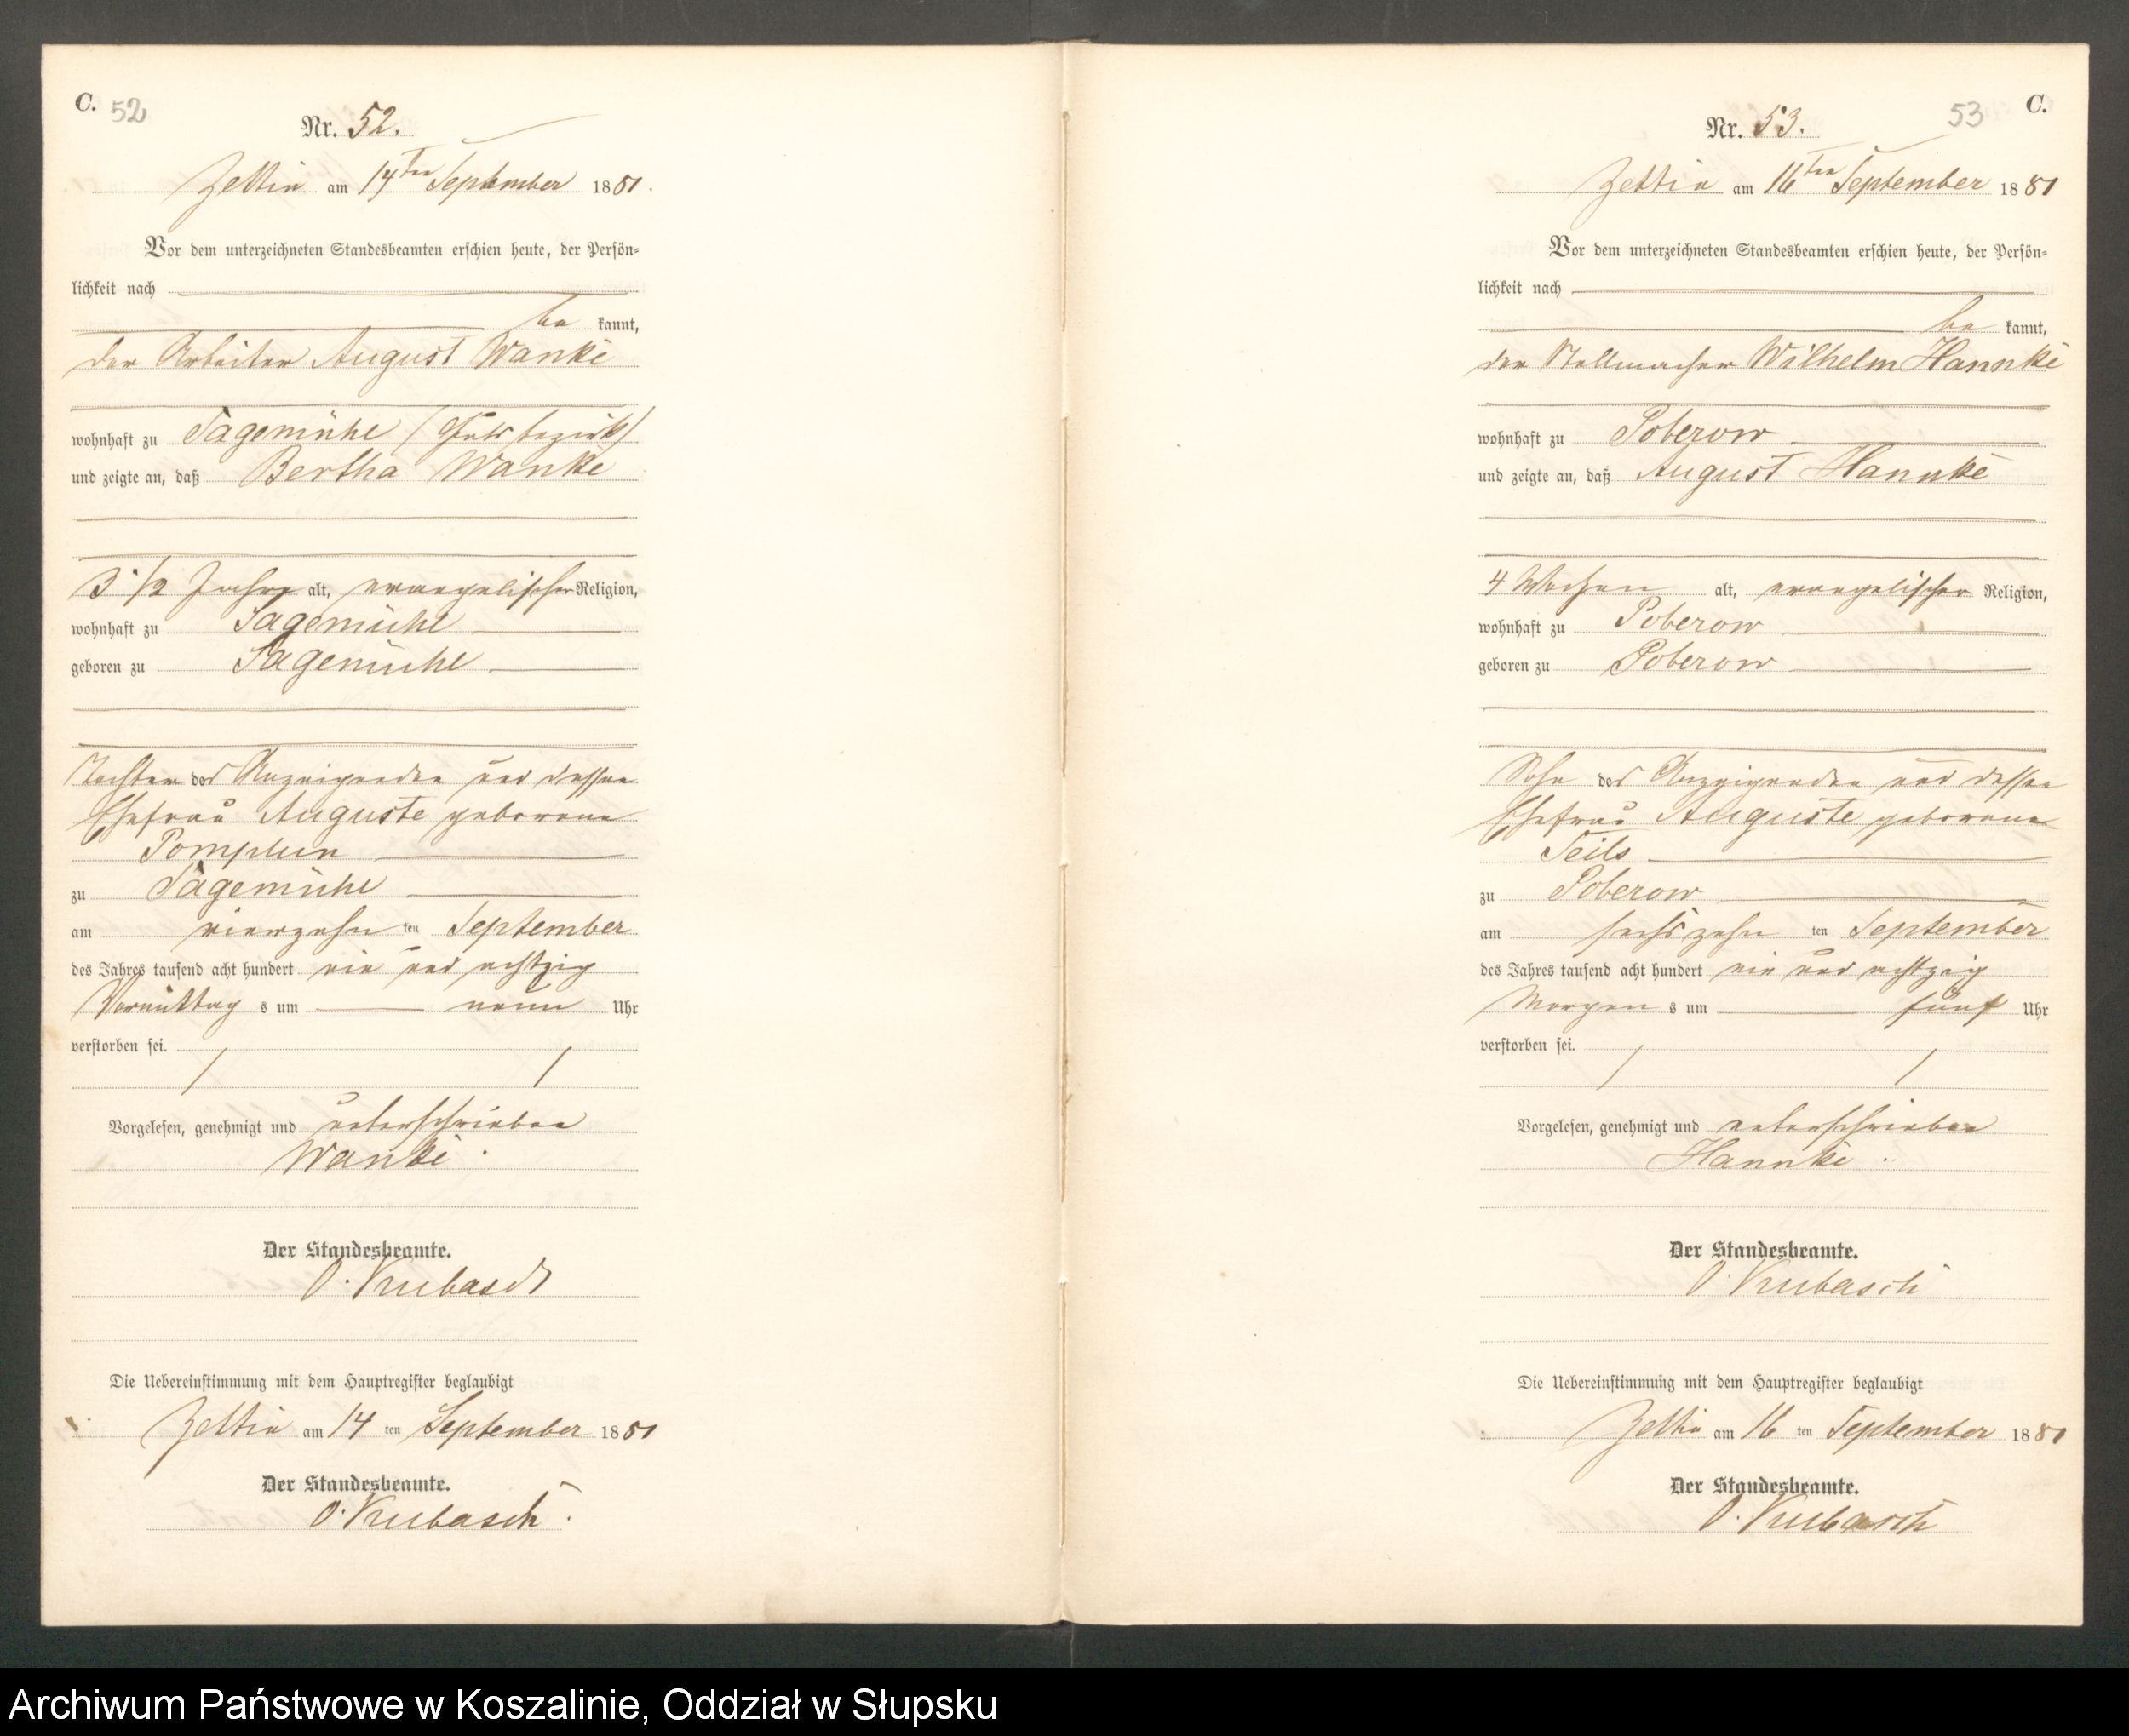 C. 52
Nr. 52.
Zettin am 14ten September 1881.
Vor dem unterzeichneten Standesbeamten erschien heute, der Persön-
lichkeit nach
be kannt,
der Arbeiter August Wanke
wohnhaft zu Sagemühl (Gutsbezirk)
und zeigte an, daß Bertha Wanke
3 1/2 Jahre alt, evangelischer Religion,
wohnhaft zu Sagemühl
geboren zu Sagemühl
Tochter des Anzeigenden und dessen
Ehefrau Auguste geborene
Pomplun
zu Sagemühl
am vierzehn ten September
des Jahres tausend acht hundert ein und achtzig
Vormittag s um neun Uhr
verstorben sei.
Vorgelesen, genehmigt und unterschrieben
Wanke.
Der Standesbeamte.
O. Kubasch
Die Uebereinstimmung mit dem Hauptregister beglaubigt
Zettin am 14 ten September 1881
Der Standesbeamte.
O. Kubasch.
53 C.
Nr. 53.
Zettin am 16ten September 1881
Vor dem unterzeichneten Standesbeamten erschien heute, der Persön-
lichkeit nach
be kannt,
der Stellmacher Wilhelm Hannke
wohnhaft zu Poberow
und zeigte an, daß August Hannke
4 Wochen alt, evangelischer Religion,
wohnhaft zu Poberow
geboren zu Poberow
Sohn des Anzeigenden und dessen
Ehefrau Auguste geborene
Teils
zu Poberow
am sechszehn ten September
des Jahres tausend acht hundert ein und achtzig
Morgen s um fünf Uhr
verstorben sei.
Vorgelesen, genehmigt und unterschrieben
Hannke.
Der Standesbeamte.
O. Kubasch
Die Uebereinstimmung mit dem Hauptregister beglaubigt
Zettin am 16 ten September 1881
Der Standesbeamte.
O. Kubasch
Archiwum Państwowe w Koszalinie, Oddział w Słupsku